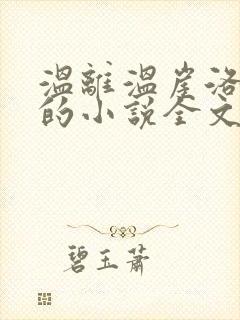 温離温崖洛
的小說全文
碧玉蕭